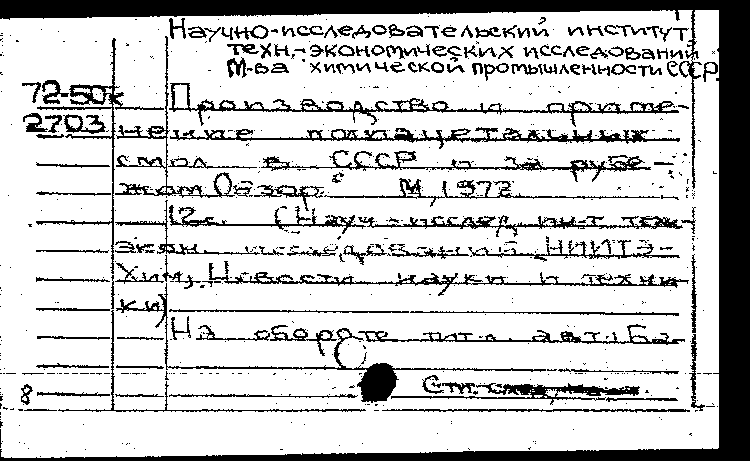 Научно-исследовательский институт
техн.-экономических исследований
М-ва химической промышленности СССР.
72-50к
Производство и приме-
2703
нение полиацетальных
смол в СССР и за рубе-
жом Обзор. М, 1972
12с. (Науч-исслед. ин-т техн-
экон. исследований НИИТЭ-
Хим, Новости науки и техни
ки)
На обороте тит.л. авт: Ба-
8 См. след,